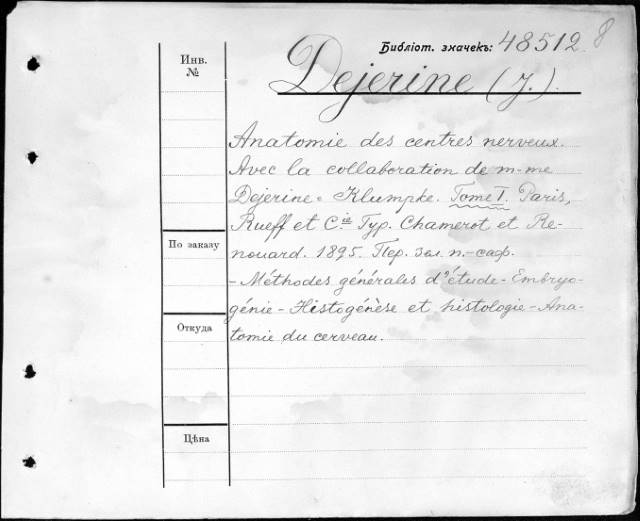 Библiот. значекъ: 48512 8
Инв. №
Dejerine (J.).
Anatomie des centres nerveux.
Avec la collaboration de m-me
Dejerine-Klumpke. Tome I. Paris,
Rueff et Cie Typ. Chamerot et Re-
nouard. 1895. Пер. зол. п.-саф.
- Méthodes générales d'étude - Embryo-
génie - Histogénèse et histologie - Ana-
tomie du cerveau.
По заказу
Откуда
Цѣна